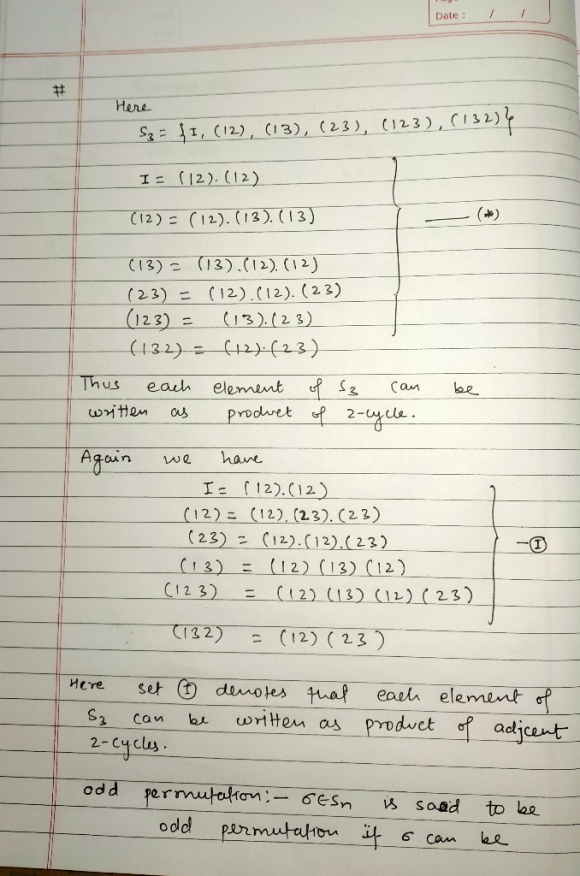 Date : / /
#
Here
S₃ = {I, (12), (13), (23), (123), (132)}
I = (12).(12)
(12) = (12).(13).(13) —— (*)
(13) = (13).(12).(12)
(23) = (12).(12).(23)
(123) = (13).(23)
(132) = (12).(23)
Thus each element of S₃ can be
written as product of 2-cycle.
Again we have
I = (12).(12)
(12) = (12).(23).(23)
(23) = (12).(12).(23) —Ⓘ
(13) = (12) (13) (12)
(123) = (12) (13) (12) (23)
(132) = (12) (23)
Here set Ⓘ denotes that each element of
S₃ can be written as product of adjcent
2-cycles.
odd permutation:— σ∈Sn is said to be
odd permutation if σ can be